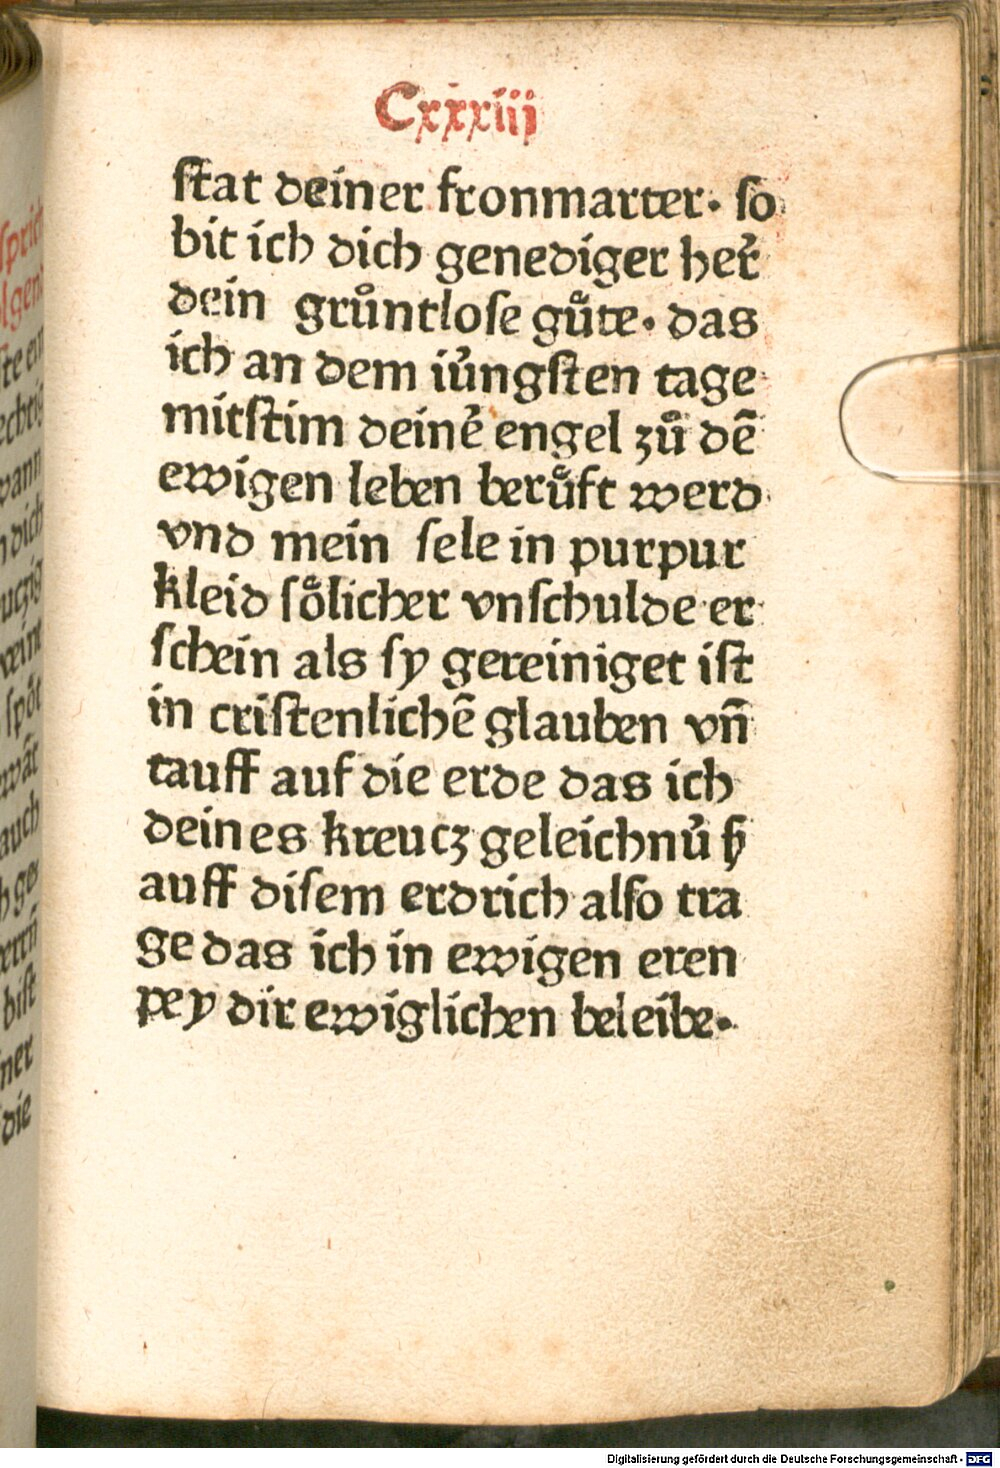 Cxxxiij
ſtat deiner fronmarter. ſo
bit ich dich genediger her̃
dein grůntloſe gůte. das
ich an dem iüngſten tage
mitſtim deinẽ engel zů dẽ
ewigen leben berůft werd
vnd mein ſele in purpur
kleid ſoͤlicher vnſchulde er
ſchein als ſy gereiniget iſt
in criſtenlichẽ glauben vñ
tauff auf die erde das ich
deines kreucz geleichnüß
auff diſem erdrich alſo tra
ge das ich in ewigen eren
pey dir ewiglichen beleibe.
ſprich
wann
n dich
auch
biſt
ner
die
Digitalisierung gefördert durch die Deutsche Forschungsgemeinschaft - DFG